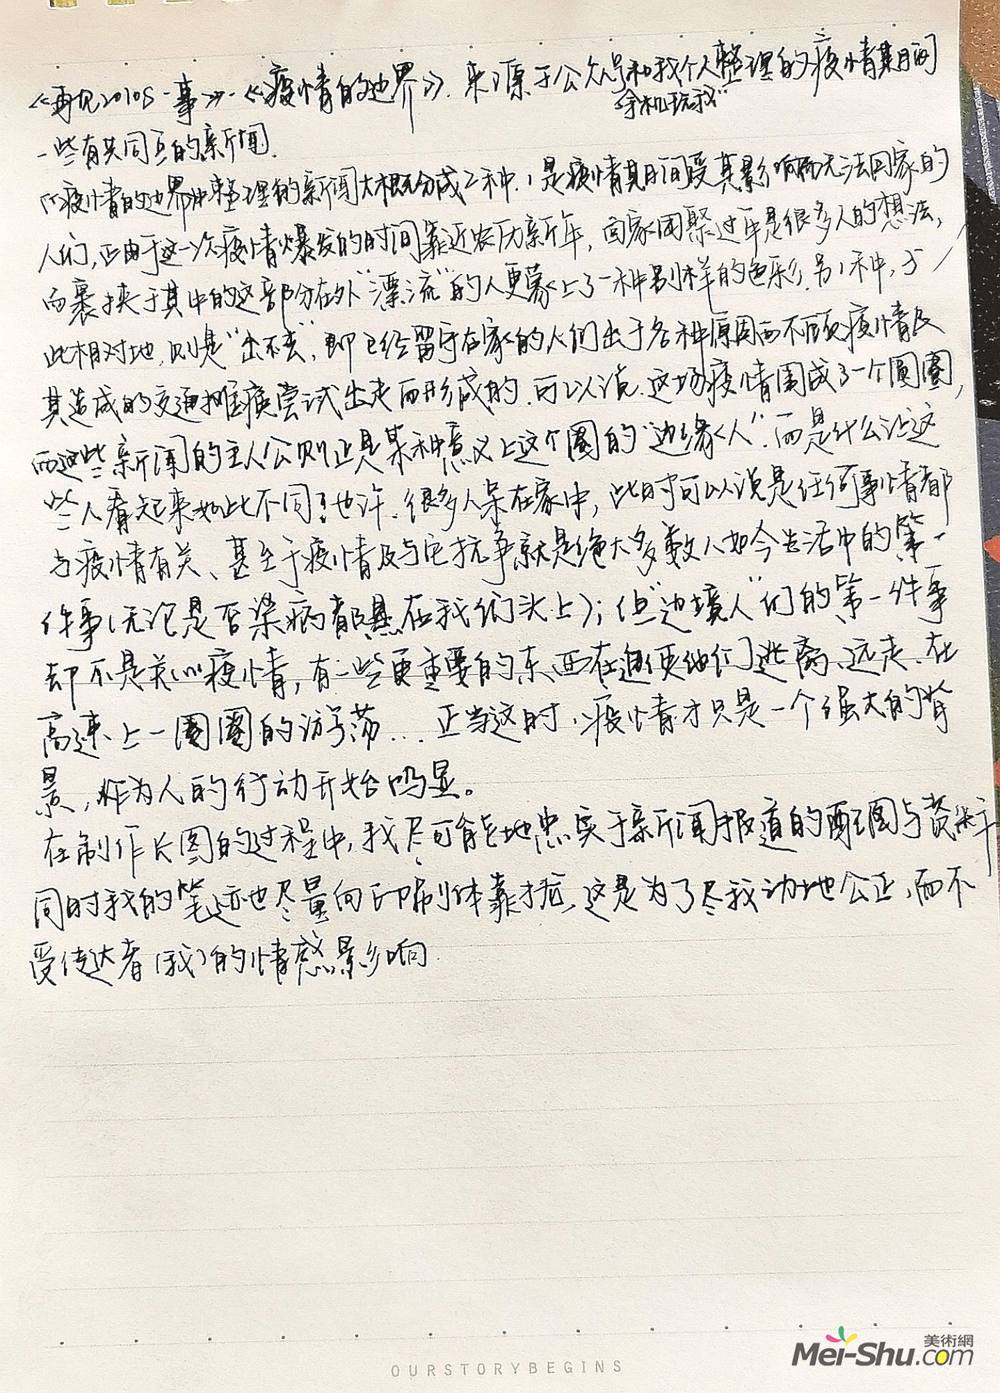 《再见2010s一事》-《疫情的边界》.来源于公众号和我个人整理的疫情期间
"手机玩我"
一些有共同点的新闻.
《疫情的边界》中整理的新闻大概分成2种.1是疫情期间受其影响而无法回家的
人们,正由于这一次疫情爆发的时间靠近农历新年,回家团聚过年是很多人的想法,
而裹挟于其中的这部分在外"漂流"的人更蒙上了一种别样的色彩.另1种,与
此相对地,则是"出去",即已经留守在家的人们出于各种原因而不顾疫情及
其造成的交通瘫痪尝试出走而形成的.可以说.这场疫情围成了一个圆圈,
而这些新闻的主人公则正是某种意义上这个圈的"边缘人".而是什么让这
些人看起来如此不同?也许.很多人呆在家中,此时可以说是任何事情都
与疫情有关、甚至于疫情及与它抗争就是绝大多数人如今生活中的第一
件事(无论是否染病都悬在我们头上);但"边境人"们的第一件事
却不是关心疫情,有一些更重要的东西在迫使他们逃离、远走、在
高速上一圈圈的游荡...正当这时,疫情才只是一个强大的背
景,作为人的行动开始鸣显。
在制作长图的过程中,我尽可能地忠实于新闻报道的配图与
同时我的笔迹也尽量向印刷体靠拢,这是为了尽我动地公正,而不
受传达者(我)的情感影响.
OURSTORYBEGINS
美術網
Mei-Shu.com